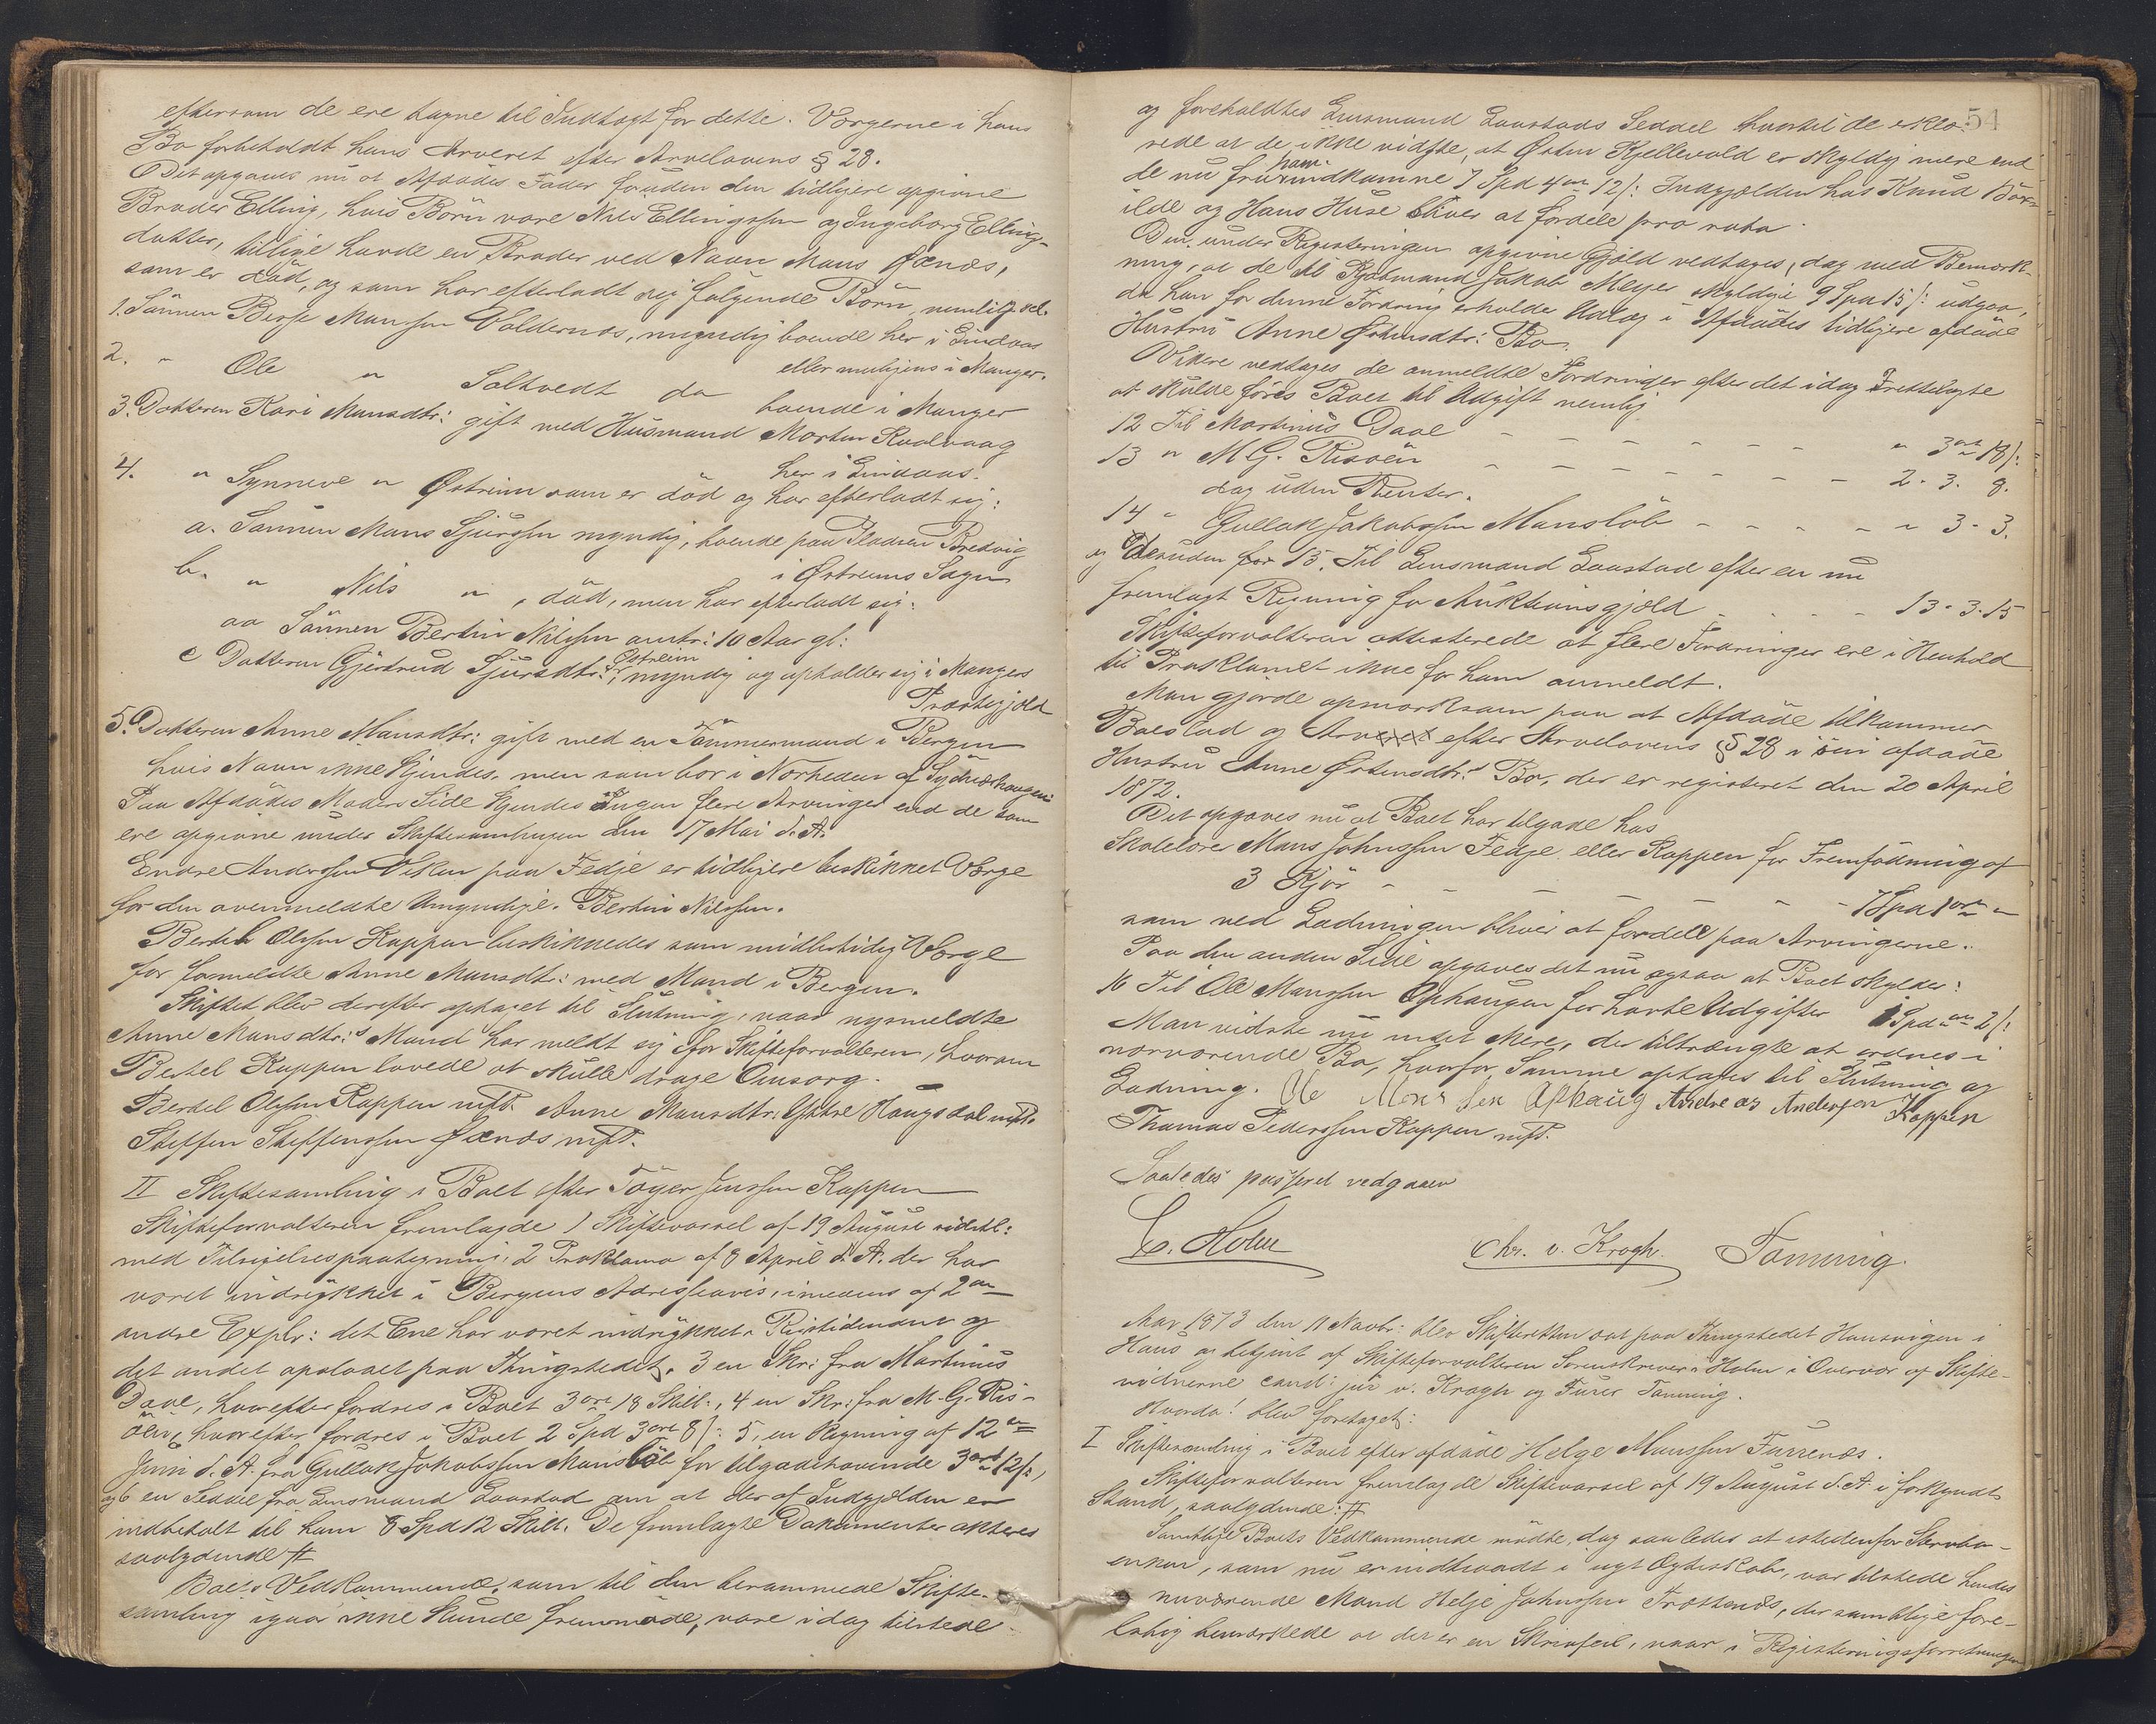 eftersom de ere tagne til Indtægt for dette. Værgerne i hans
Bo forbeholdt hans Arveret efter Arvelovens § 28.
Det opgaves nu at Afdødes Fader foruden den tidligere opgivne
Broder Elling, hvis Børn vare Nils Ellingssen og Ingeborg Ellings-
datter, tillige havde en Broder ved Navn Mons Øxnæs,
som er död, og som har efterladt sig følgende Børn, nemlig vel.
1. Sønnen Berge Monssen Valdernæs, myndig boende her i Lindaas
eller muligens i Manger.
2. " Ole " Saltvedt do boende i Manger
3. Datteren Kari Monsdtr: gift med Husmand Morten Kvalvaag
her i Lindaas.
4. " Synneve " Østreim som er död og har efterladt sig:
a. Sønnen Mons Sjurssen myndig, boende paa Pladsen Bredvig
i Østreims Sogn
b. " Nils " , död, men har efterladt sig:
aa Sønnen Bertin Nilssen omtr: 10 Aar gl:
c Datteren Gjertrud Sjursdtr: Østreim, myndig og opholder sig i Mangers
Præstegjeld
5. Datteren Anne Monsdtr: gift med en Tømmermand i Bergen
hvis Navn ikke kjendes, men som bor i Norheden af Sydnæshaugen
Paa Afdødes Moders Side kjendes Ingen flere Arvinger end de som
ere opgivne under Skiftesamlingen den 17 Mai d. A.
Endre Anderssen Viken paa Fedje er tidligere beskikket Værge
for den ovenmeldte Umyndige. Bertin Nilssen.
Bertel Olssen Kappen beskikkedes som midlertidig Værge
for formeldte Anne Monsdtr: med Mand i Bergen.
Skiftet blev derefter optaget til Slutning, naar nysmeldte
Anne Monsdtr:s Mand har meldt sig for Skifteforvalteren, hvorom
Bertel Kappen lovede at skulle drage Omsorg.
Bertel Olssen Kappen mfP. Anne Monsdtr: Ystre Hougsdal mfP.
Steffen Steffenssen Øxnæs mfP.
II Skiftesamling i Boet efter Töger Jenssen Kappen
Skifteforvalteren fremlagde 1 Skiftevarsel af 19 August sidstl:
med Tilsigelsespaategning, 2 Proklama af 8 April d. A. der har
været indrykket i Bergens Adresseavis, imedens af 2de
andre Explr: det Ene har været indrykket i Rigstidende og
det andet oplæst paa Thingstedet, 3 en Skr: fra Martinus
Daae, hvorefter fordres i Boet 3 ort 18 Skill:, 4 en Skr: fra M. G. Ris-
öen, hvorefter fordres i Boet 2 Spd 3 ort 8 /: 5, en Regning af 12te
Juni d. A. fra Gullak Jakobssen Monslöb for tilgodehavende 3 ort 12 /:,
og 6 en Seddel fra Lensmand Laastad om at der af Indgjælden er
indbetalt til ham 8 Spd 12 Skill. De fremlagte Dokumenter akteres
saalydende #
Boets Vedkommende, som til den berammede Skifte-
samling igaar ikke kunde fremmøde, vare idag tilstede
54
og foreholdtes Lensmand Laastads Seddel hvortil de erklæ-
rede at de ikke vidste, at Østen Kjellevold er skyldig mere end
de nu fremkomne 7 Spd 4 ort 12 /: Indgjælden hos Knud Bör-
ilde og Hans Huse bliver at fordele pro rata.
Den under Registeringen opgivne Gjæld vedtages, dog med Bemærk-
ning, at de til Kjøbmand Jakob Meyer skyldige 9 Spd 15 /: udgaa,
da han for denne Fordring erholder Udlæg i Afdødes tidligere afdøde
Hustru Anne Østensdtr: Bo.
Videre vedtages de anmeldte Fordringer efter det idag Fremlagte
at skulde føres Boet til Udgift nemlig
12 Til Martinus Daae - - - - - - " 3 ort 18 /:
13 " M. G. Risöen - - - - - - 2 - 3. 8.
dog uden Renter.
14 " Gullak Jakobssen Monslöb - - - - " 3 - 3.
og Desuden for 15. Til Lensmand Laastad efter en nu
fremlagt Regning for Auktionsgjæld - - - - 13 - 3. 15
Skifteforvalteren attesterede at flere Fordringer ere i Henhold
til Proklamet ikke for ham anmeldt.
Man gjorde opmærksom paa at Afdøde tilkommer
Boeslod og Arv efter Arvelovens § 28 i sin afdøde
Hustru Anne Østensdtr:s Bo, der er registeret den 20 April
1872.
Det opgaves nu at Boet har tilgode hos
Skolelærer Mons Johnssen Fedje eller Kappen for Fremfødning af
3 Kjør - - - - - - 7 Spd 1 ort "
som ved Lodningen bliver at fordele paa Arvingerne.
Paa den anden Side opgaves det nu ogsaa at Boet skylder:
16 Til Ole Monssen Ophaugen for havte Udgifter 1 Spd " ort 2 /:
Man vidste nu intet Mere, der tiltrængte at ordnes i
nærværende Bo, hvorfor Samme optages til Slutning og
Lodning. Ole Mons sen Aphaug Andreas Andersen Kappen
Thomas Pederssen Kappen mfP.
Saaledes passeret vedgaaes
C. Holm Chr. v. Krogh. Tanning.
Aar 1873 den 11 Novbr: blev Skifteretten sat paa Thingstedet Hausvigen i
Haus og betjent af Skifteforvalteren Sorenskriver Holm i Overvær af Skifte-
vidnerne cand: jur v. Krogh og Furer Tanning.
Hvorda! blev foretaget:
I Skiftesamling i Boet efter afdøde Helge Monssen Furrenæs.
Skifteforvalteren fremlagde Skiftevarsel af 19 August d. A. i forkyndt
Stand, saalydende: #
Samtlige Boets Vedkommende mødte, dog saaledes at istedenfor Stervbo-
enken, som nu er indtraadt i nyt Ægteskab, var tilstede hendes
nuværende Mand Helje Johnssen Trættenæs, der samtlige fore-
løbig bemærkede at det er en Skrivfeil, naar i Registeringsforretningen